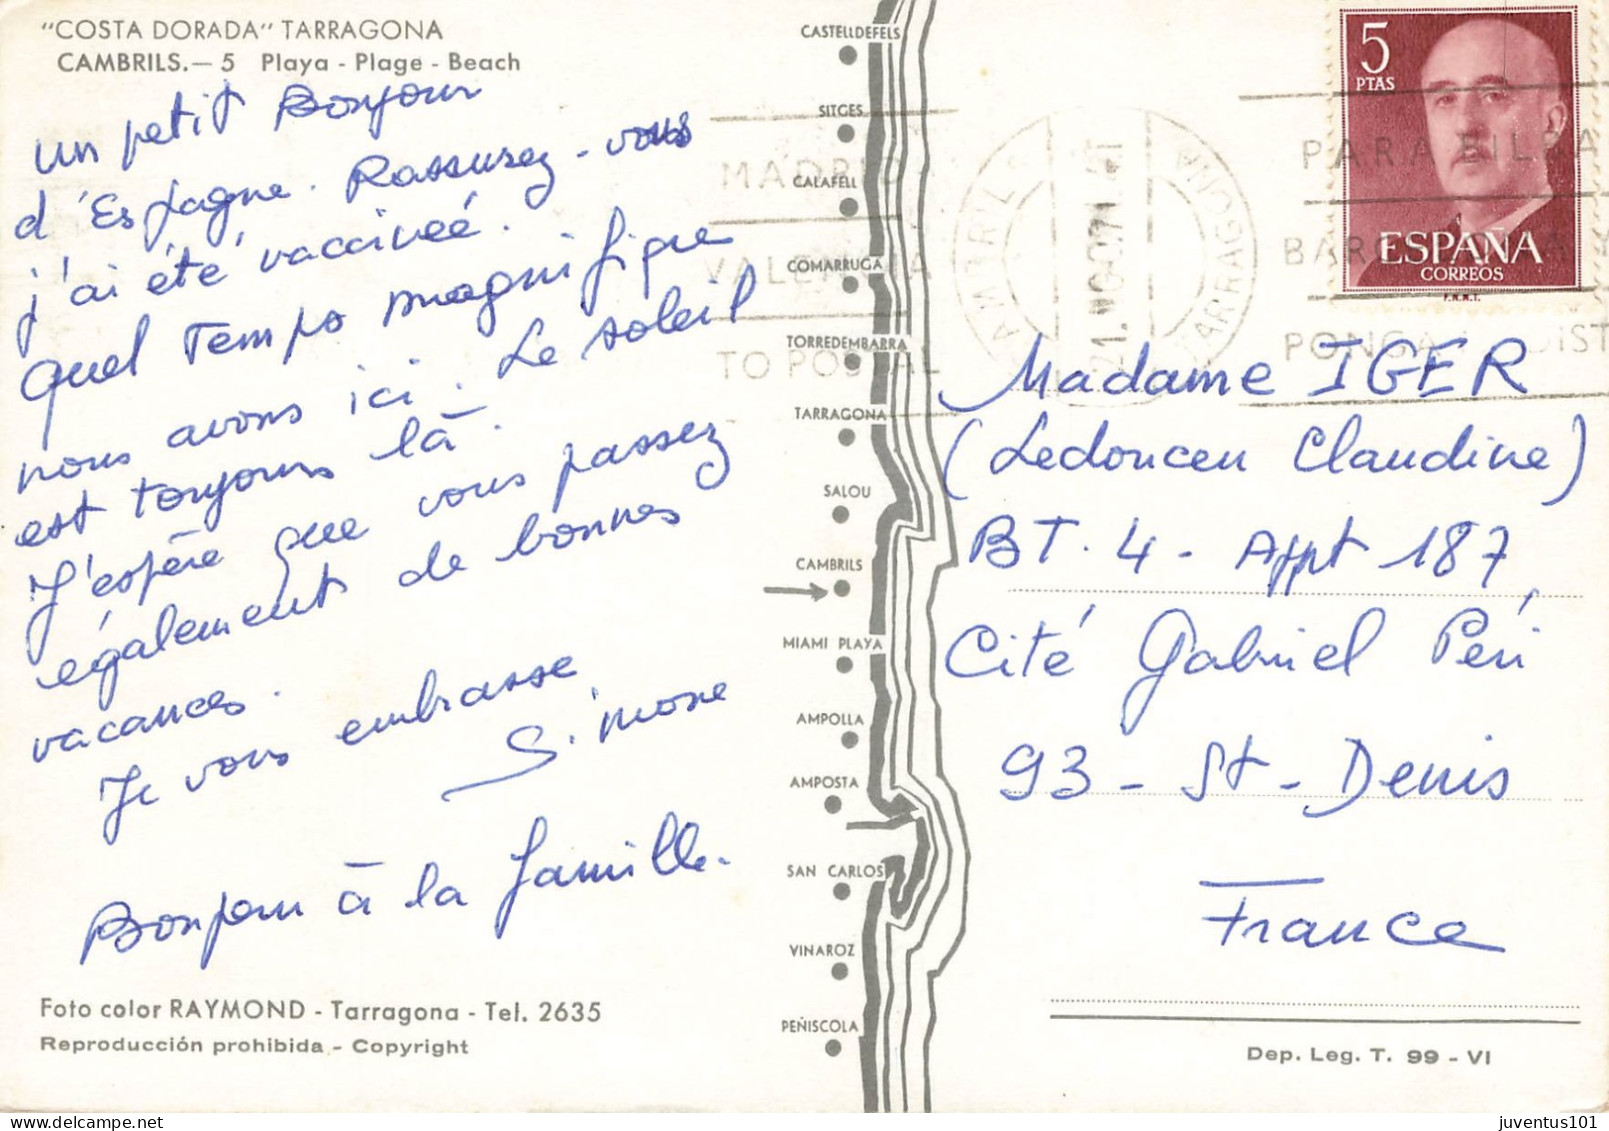 "COSTA DORADA" TARRAGONA
CAMBRILS.— 5 Playa - Plage - Beach
un petit Bonjour
d'Espagne. Rassurez-vous
j'ai été vaccineé.
Quel Temps magnifique
nous avons ici. Le soleil
est toujours là.
J'espère que vous passez
également de bonnes
vacances.
Je vous embrasse
Simone
Bonjour à la famille.
Foto color RAYMOND - Tarragona - Tel. 2635
Reproducción prohibida - Copyright
CASTELLDEFELS
SITGES
CALAFELL
COMARRUGA
TORREDEMBARRA
TARRAGONA
SALOU
CAMBRILS
MIAMI PLAYA
AMPOLLA
AMPOSTA
SAN CARLOS
VINAROZ
PEÑISCOLA
MADRID
VALENCIA
TO POSTAL
TARRAGONA
PARA BILBAO
PONGA DIST
5
PTAS
ESPAÑA
CORREOS
F.N.M.T.
Madame IGER
(Ledoucen Claudine)
BT. 4 - Appt 187
Cité Gabriel Péri
93 - St - Denis
France
Dep. Leg. T. 99 - VI
juventus101